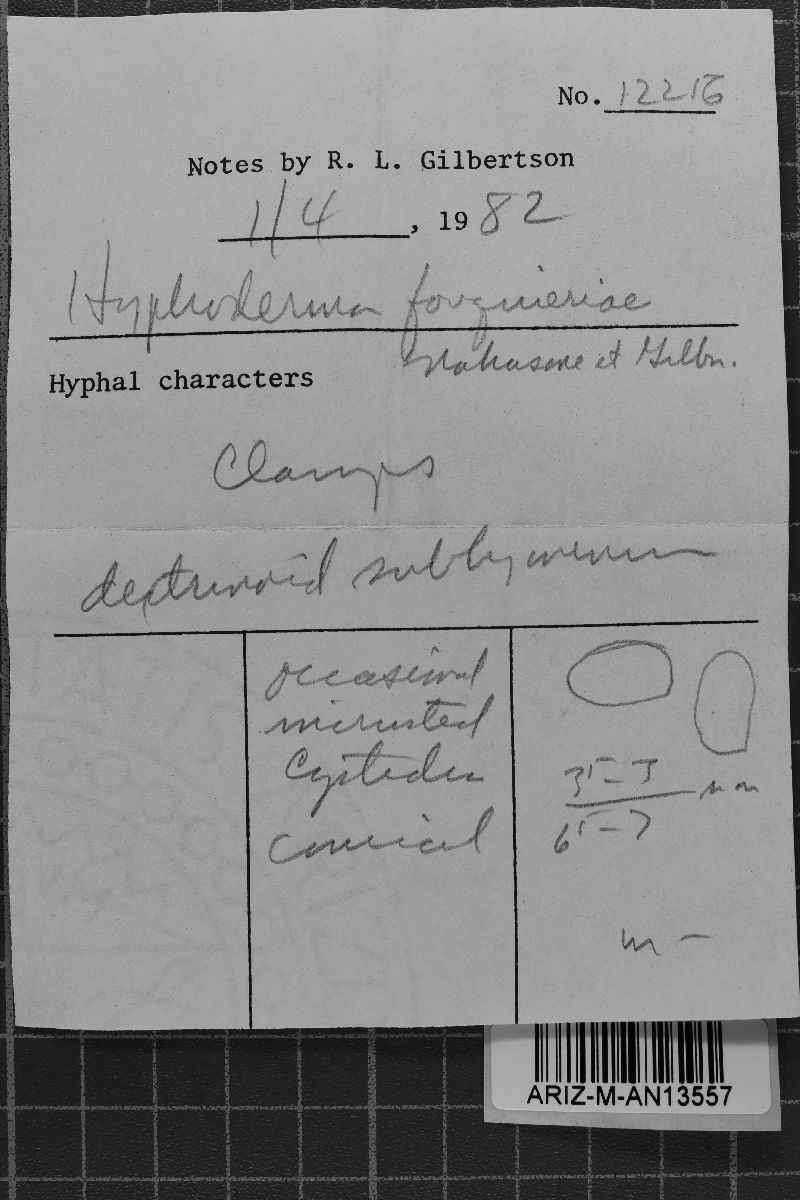 No. 12216
Notes by R. L. Gilbertson
1/4, 1982
Hyphoderma fouquieriae
Nakasone et Gilbn.
Hyphal characters
Clamps
dextrinoid subhymenium
occasional
incrusted
Cystidia
conical
m -
ARIZ-M-AN13557